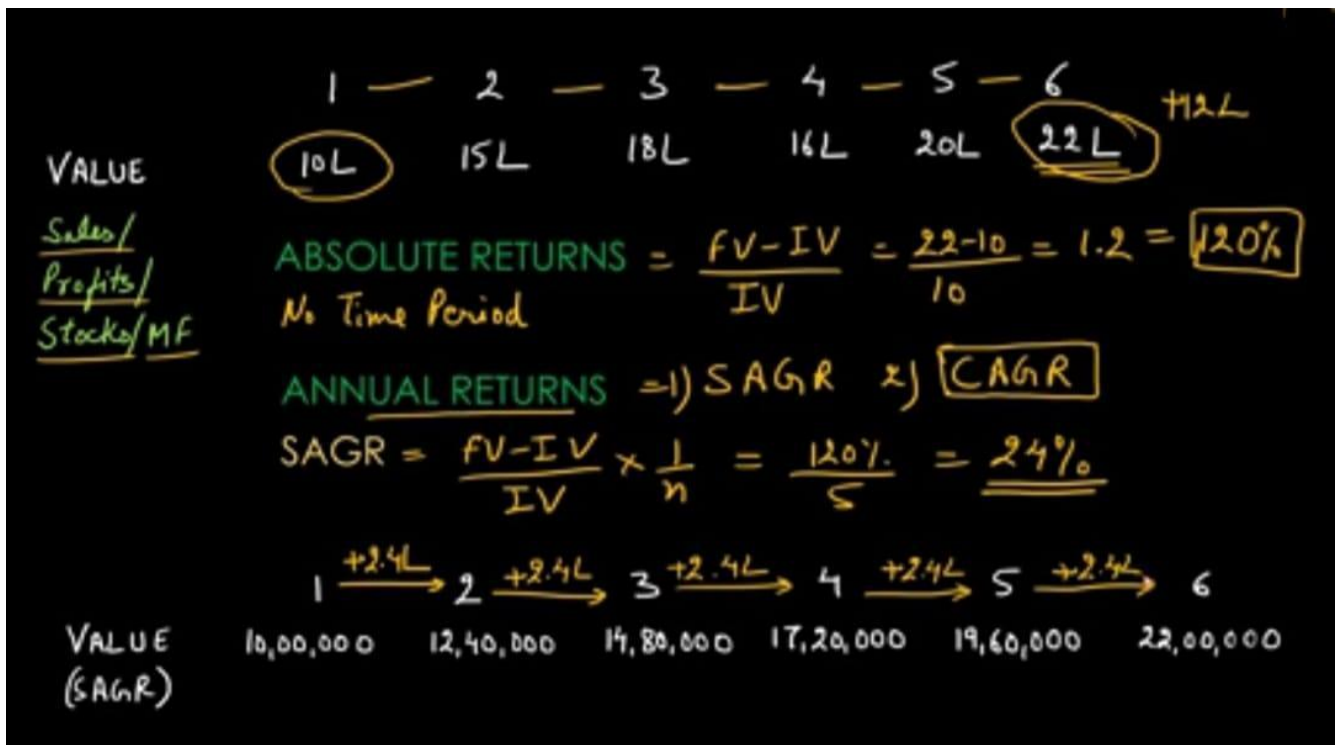 1 — 2 — 3 — 4 — 5 — 6
+12L
VALUE 10L 15L 18L 16L 20L 22L
Sales/
Profits/
Stocks/MF
ABSOLUTE RETURNS = FV-IV / IV = 22-10 / 10 = 1.2 = 120%
No Time Period
ANNUAL RETURNS =1) SAGR 2) CAGR
SAGR = FV-IV / IV × 1 / n = 120% / 5 = 24%
1 +2.4L 2 +2.4L 3 +2.4L 4 +2.4L 5 +2.4L 6
VALUE 10,00,000 12,40,000 14,80,000 17,20,000 19,60,000 22,00,000
(SAGR)